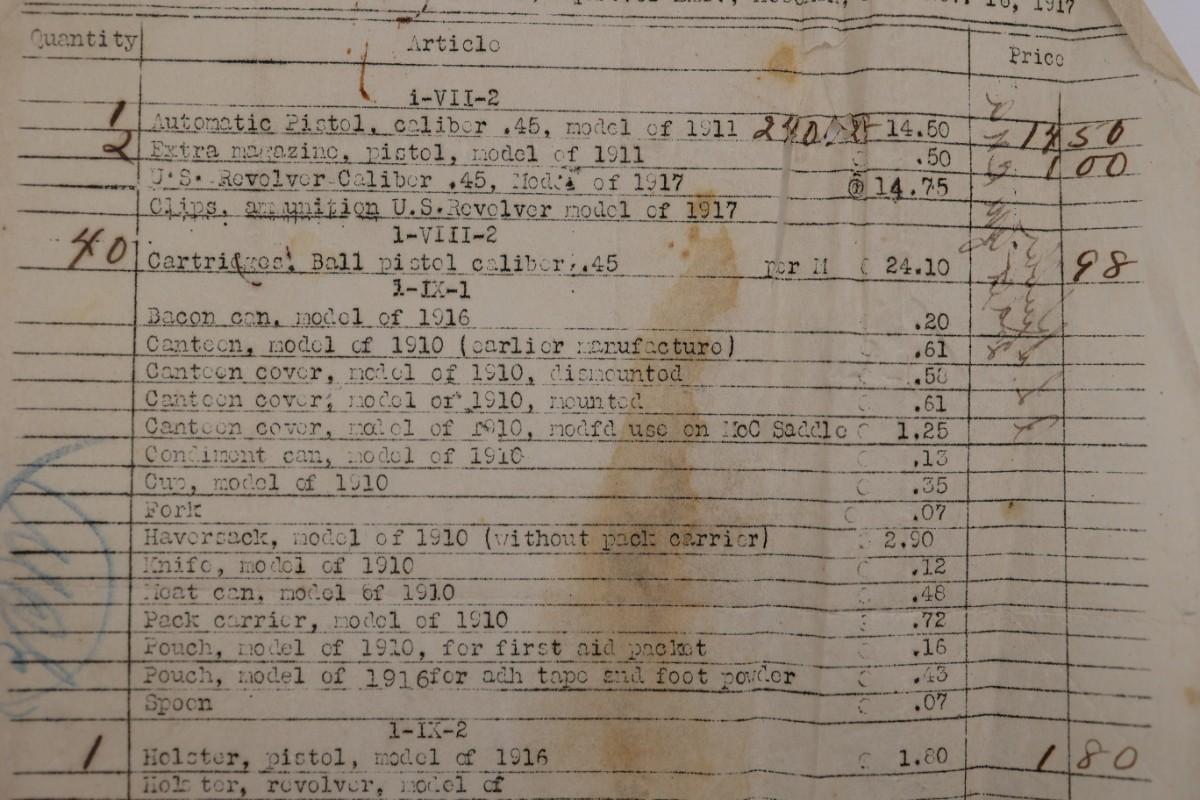 16, 1917
Quantity Article Price
i-VII-2
1 Automatic Pistol, caliber .45, model of 1911 14.50 14 50
2 Extra magazine, pistol, model of 1911 .50 1 00
U.S. Revolver Caliber .45, Model of 1917 @ 14.75
Clips, ammunition U.S.Revolver model of 1917
1-VIII-2
40 Cartridges, Ball pistol caliber .45 per M 24.10 98
1-IX-1
Bacon can, model of 1916 .20
Canteen, model of 1910 (earlier manufacture) .61
Canteen cover, model of 1910, dismounted
Canteen cover, model of 1910, mounted .61
Canteen cover, model of 1910, modfd use on McC Saddle 1.25
Condiment can, model of 1910 .13
Cup, model of 1910 .35
Fork .07
Haversack, model of 1910 (without pack carrier) 2.90
Knife, model of 1910 .12
Meat can, model of 1910 .48
Pack carrier, model of 1910 .72
Pouch, model of 1910, for first aid packet .16
Pouch, model of 1916for adh tape and foot powder .43
Spoon .07
1-IX-2
1 Holster, pistol, model of 1916 1.80 1 80
Holster, revolver, model of